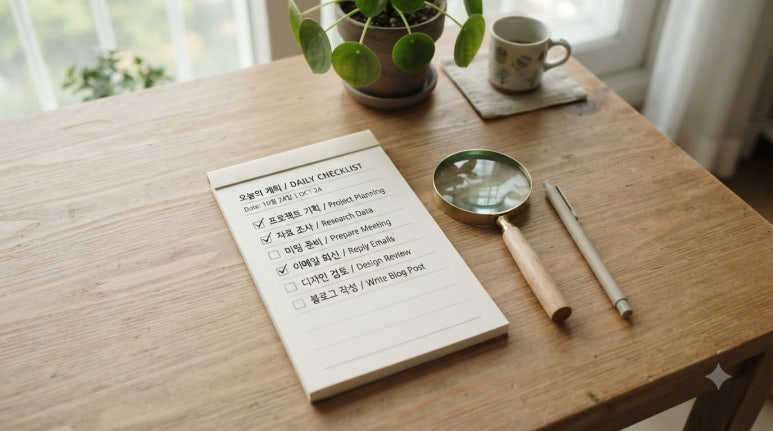 오늘의 계획 / DAILY CHECKLIST
Date: 10월 24일 | OCT 24
프로젝트 기획 / Project Planning
자료 조사 / Research Data
미팅 준비 / Prepare Meeting
이메일 회신 / Reply Emails
디자인 검토 / Design Review
블로그 작성 / Write Blog Post